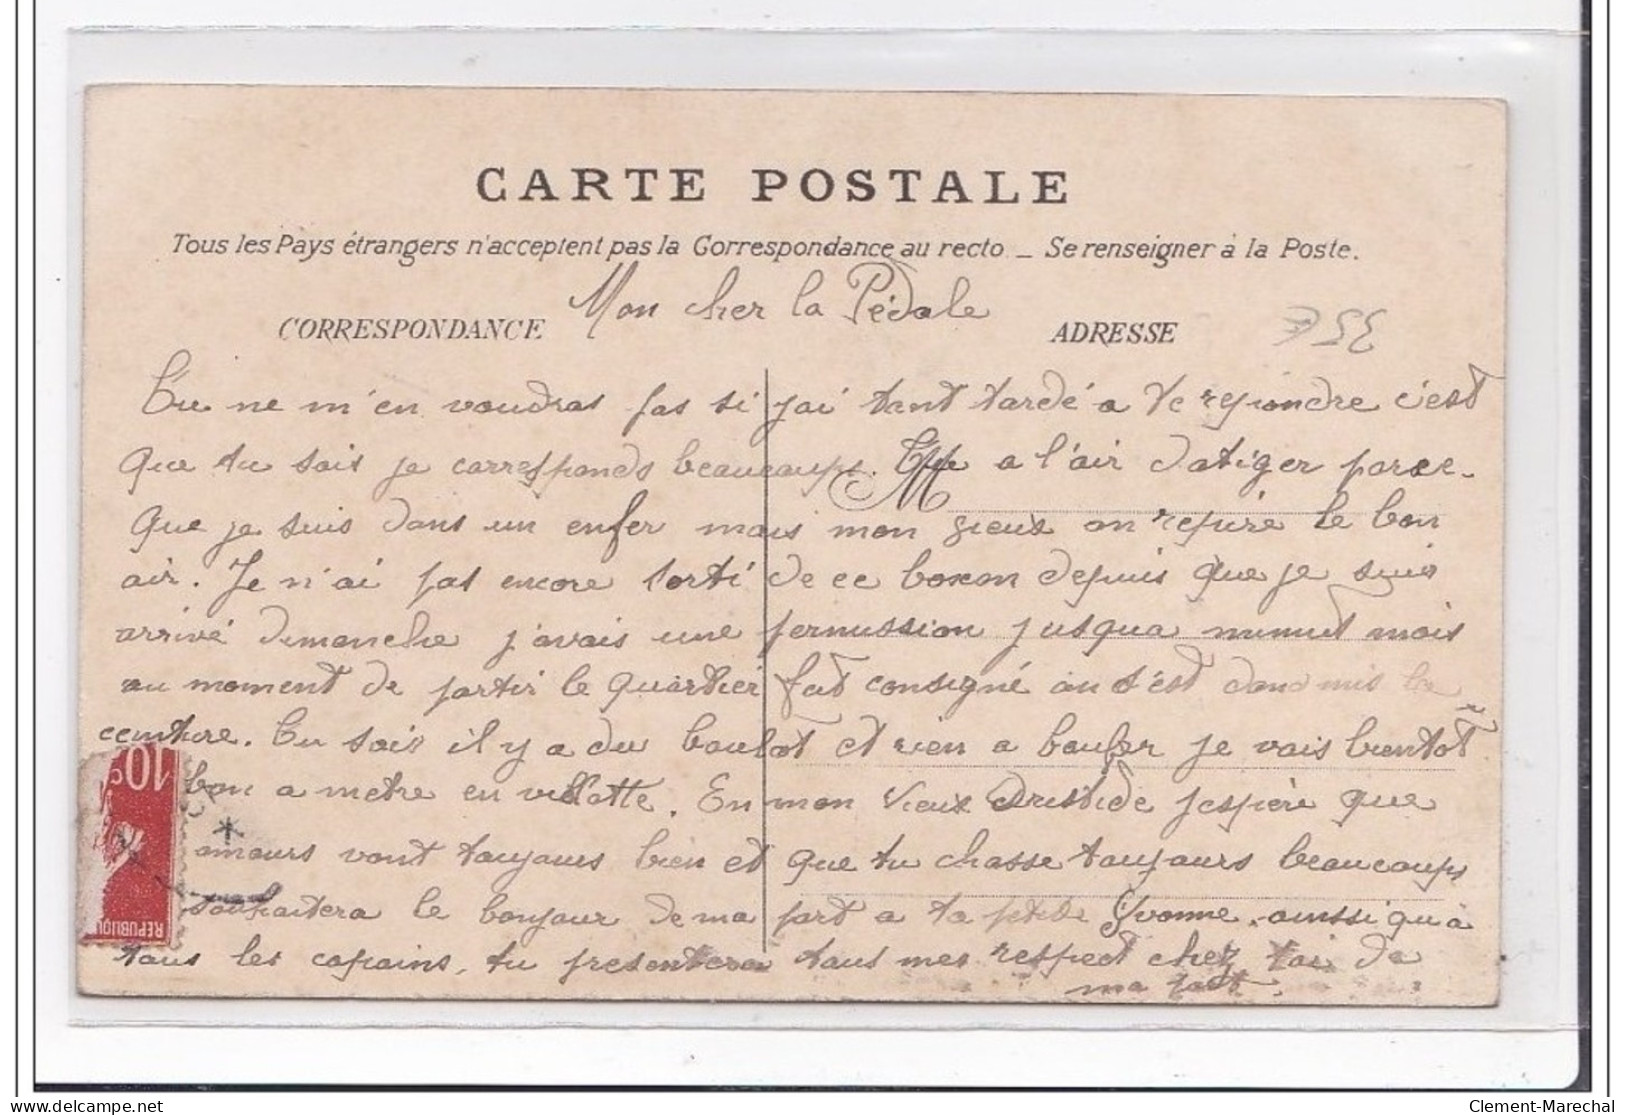 CARTE POSTALE
Tous les Pays étrangers n'acceptent pas la Correspondance au recto _ Se renseigner à la Poste.
Mon cher la Pédale
CORRESPONDANCE ADRESSE
Tu ne m'en voudras pas si j'ai tant tardé a te rejoindre c'est
que tu sais je corresponds beaucoups. a l'air d'atiger parce-
que je suis dans un enfer mais mon vieux on repire le bon
air. Je n'ai pas encore sorti de ce boxon depuis que je suis
arrivé dimanche j'avais une permission jusqua minuit mais
au moment de partir le quartier fut consigné on s'est dond mis la
ceinture. Tu sais il y a du boulot et rien a boufer je vais bientot
bon a metre en En mon vieux Aristide jespère que
amours vont toujours bien et que tu chasse toujours beaucoups
souhaitera le bonjour de ma part a ta petite Yvonne, ainssi qu'à
tous les copains, tu presentera tous mes respect chez toi de
ma part.
10c
REPUBLIQU
Clement-Marechal